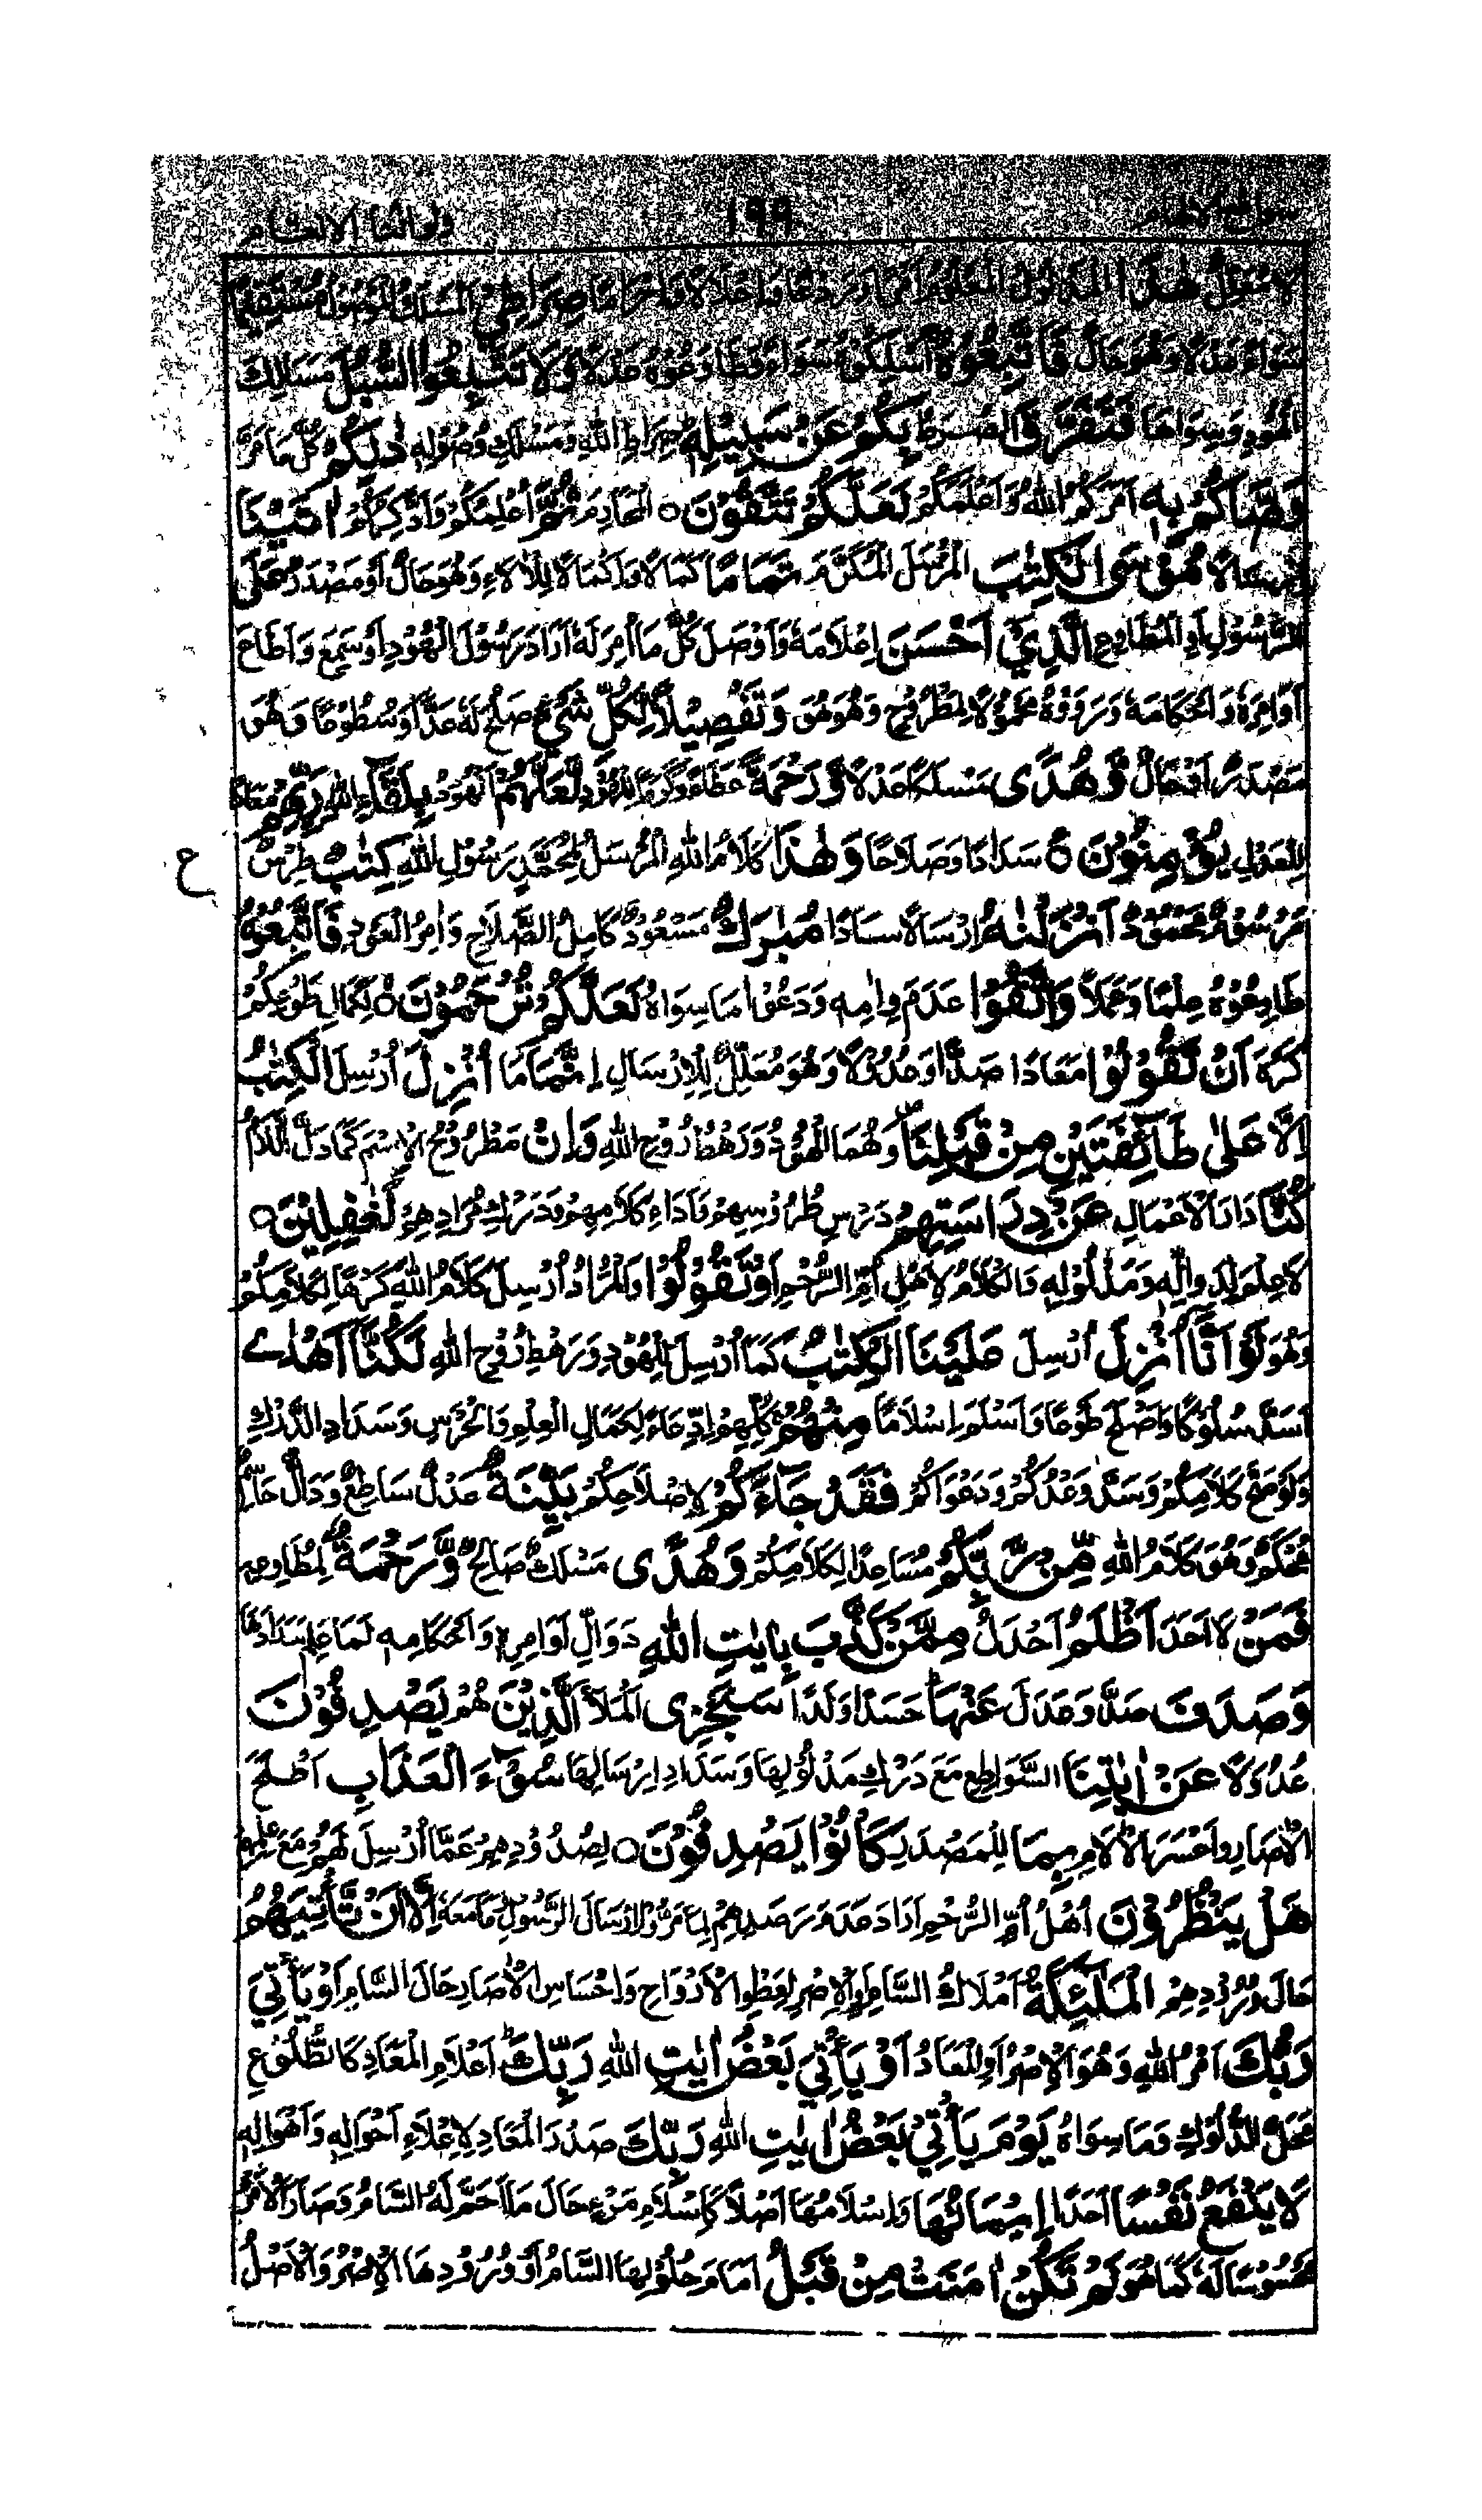 سواطع الالهام ١٩٩ ولواننا الانعام
صِرَاطِيْ المسلك الموصول مُسْتَقِيْمًا
سواء وهو حال فَاتَّبِعُوْهُ اسلكوه سواء وطاوعوه وَلَا تَتَّبِعُوا السُّبُلَ مسالك
وسواها فَتَفَرَّقَ بِكُمْ عَنْ سَبِيْلِهٖ صراط الله ومسلك وصوله ذٰلِكُمْ كل ما مر
وَصّٰكُمْ بِهٖ امركم الله واعلمكم لَعَلَّكُمْ تَتَّقُوْنَ ○ المحارم ثُمَّ اعلمكم وادكركم اٰتَيْنَا
ارسالا مُوْسَى الْكِتٰبَ المرسل المكرم تَمَامًا كمالا واكمالا للآلاء وهو حال او مصدر عَلَى
الرسول او المطاوع الَّذِيْ اَحْسَنَ اعلامه واوصل كل ما امر له اراد رسول الهود او سمع واطاع
اوامره واحكامه ورووه محمولا لمطروح وهو هو وَتَفْصِيْلًا لِكُلِّ شَيْءٍ صلح له عدا وسطوحا وهو
مصدر او حال وَهُدًى مسلكا عدلا وَرَحْمَةً عطاء وكرما للهود لَعَلَّهُمْ الهود بِلِقَاءِ الله رَبِّهِمْ معادا
للعدل يُؤْمِنُوْنَ ○ سدادا وصلاحا وَهٰذَا كلام الله المرسل لمحمد رسول الله كِتٰبٌ طرس
مرسوم محمود اَنْزَلْنٰهُ ارسالا سادا مُبٰرَكٌ مسعود كامل الصلاح وامر العود فَاتَّبِعُوْهُ
طاوعوه علما وعملا وَاتَّقُوْا عدم وامه ودعوا ما سواه لَعَلَّكُمْ تُرْحَمُوْنَ ○ لكمال طوعكم
كره اَنْ تَقُوْلُوْا معادا صدا وعدولا وهو معلل للارسال اِنَّمَا ما اُنْزِلَ ارسل الْكِتٰبُ
اِلَّا عَلٰى طَآئِفَتَيْنِ مِنْ قَبْلِنَا وهما الهود ورهط روح الله وَاِنْ مطروح الاسم كما دل اللام
كُنَّا دارا لاعمال عَنْ دِرَاسَتِهِمْ درس طروسهم واداء كلامهم ودرك مرادهم لَغٰفِلِيْنَ ○
لا علم لدواله ومدلوله والكلام لاهل ام الرحم اَوْ تَقُوْلُوْا والمراد ارسل كلام الله كرها لكلامكم
وهو لَوْ اَنَّا اُنْزِلَ ارسل عَلَيْنَا الْكِتٰبُ كما ارسل للهود ورهط روح الله لَكُنَّا اَهْدٰى
اسد سلوكا واصلح طوعا واسلم اسلاما مِنْهُمْ كلهم ادعاء لكمال العلم والحدس وسداد الدرك
ولو صح كلامكم وسد وعدكم ودعواكم فَقَدْ جَآءَكُمْ لاصلاحكم بَيِّنَةٌ عدل ساطع ودال
محكم وهو كلام الله مِنْ رَّبِّكُمْ مساعدا لكلامكم وَهُدًى مسلك صالح وَرَحْمَةٌ لمطاوعه
فَمَنْ لا احد اَظْلَمُ احدل مِمَّنْ كَذَّبَ بِاٰيٰتِ اللهِ دوال اوامره واحكامه لما علم سدادها
وَصَدَفَ صد وعدل عَنْهَا حسدا ولدا سَنَجْزِى الملأ الَّذِيْنَ هم يَصْدِفُوْنَ
عدولا عَنْ اٰيٰتِنَا السواطع مع درك مدلولها وسداد ارسالها سُوْٓءَ الْعَذَابِ اطلح
الآصار واعسرها الآلام بِمَا للمصدر كَانُوْا يَصْدِفُوْنَ ○ لصدودهم عما ارسل لهم مع علمهم
هَلْ يَنْظُرُوْنَ اهل ام الرحم اراد عدم رصدهم لما مر والارسال الرسول وما معه اِلَّا اَنْ تَأْتِيَهُمُ
حال ورودهم الْمَلٰٓئِكَةُ املاك السام او الاصر لعطو الارواح واحساس الآصار حال السام اَوْ يَأْتِيَ
رَبُّكَ امر الله وهو الاصر او المعاد اَوْ يَأْتِيَ بَعْضُ اٰيٰتِ الله رَبِّكَ اعلام المعاد كالطلوع
محل الدلوك وما سواه يَوْمَ يَأْتِيْ بَعْضُ اٰيٰتِ الله رَبِّكَ صدد المعاد لاعلاء احواله واهواله
لَا يَنْفَعُ نَفْسًا احدا اِيْمَانُهَا واسلامها اصلا كاسلام مرء حال ما احم له السام وصار الامر
محسوسا له كما هو لَمْ تَكُنْ اٰمَنَتْ مِنْ قَبْلُ امام حلولها السام او ورودها الاصر والاصل
ع